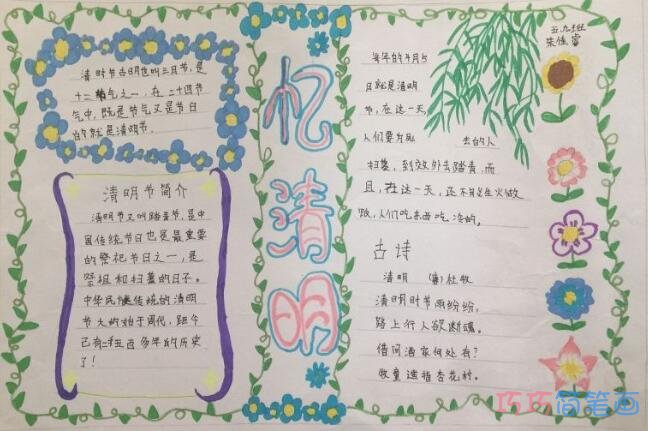 清明节古时也叫三月节,是
十二节气之一,在二十四节
气中,既是节气又是节日
的就是清明节.
清明节简介
清明节又叫踏青节,是中
国传统节日也是最重要
的祭祀节日之一,是
祭祖和扫墓的日子。
中华民族传统的清明
节大约始于周代,距今
已有二千五百多年的历史
了!
忆清明
每年的4月5
日就是清明
节,在这一天,
人们要为死去的人
扫墓,到效外去踏青,而
且,在这一天,还不能生火做
饭,人们吃东西吃冷的。
古诗
清明 (唐)杜牧
清明时节雨纷纷,
路上行人欲断魂。
借问酒家何处有?
牧童遥指杏花村。
五、九班
巧巧简笔画